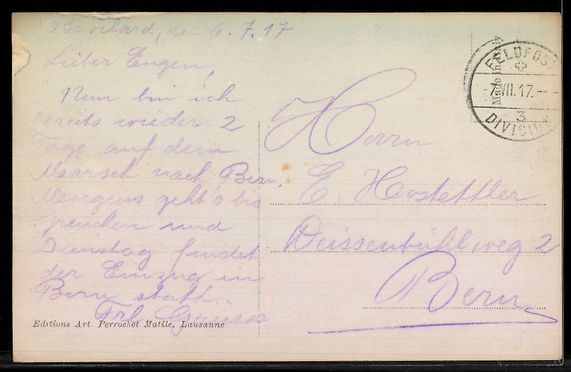 Bévilard, den 6.7.17
Lieber Eugen,
Nun bin ich
bereits wieder 2
Tage auf dem
Marsch nach Bern.
Morgens geht's bis
und
Dienstag findet
der Einzug in
Bern statt.
Frl. Gruss
Editions Art. Perrochet Matile, Lausanne
Made in
FELDPOST
7.VII.17.-
3
DIVISION
Herrn
E. Hostettler
Weissenbühlweg 2
Bern